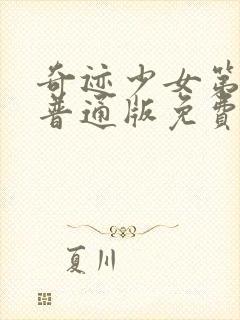 奇迹少女第
普通版免費
夏川